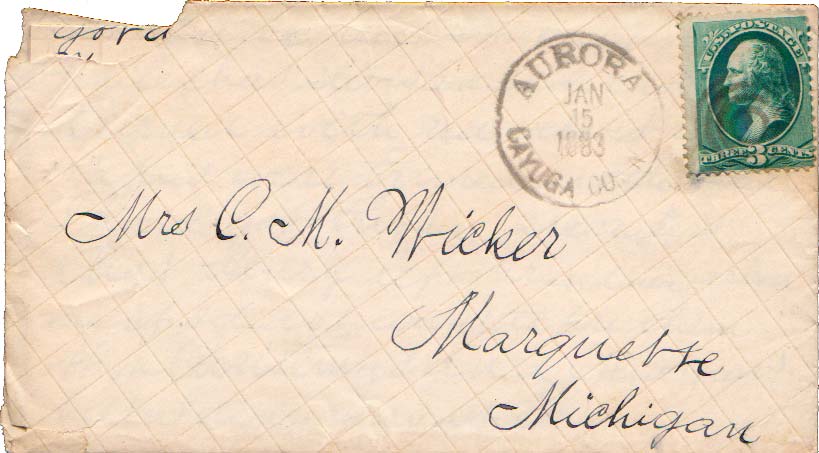 AURORA
JAN
15
1883
CAYUGA CO. N
U.S. POSTAGE
THREE 3 CENTS
Mrs C. M. Wicker
Marquette
Michigan